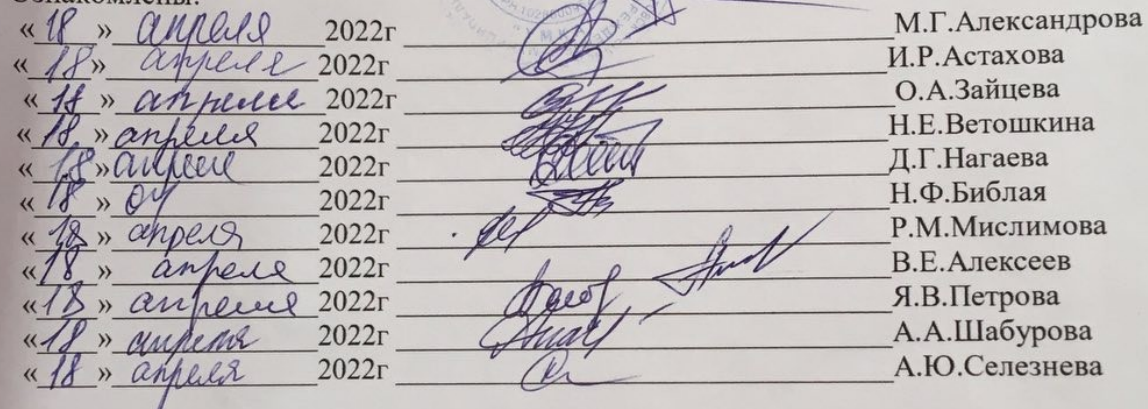 Ознакомлены:
« 18 » апреля 2022г М.Г.Александрова
« 18 » апреля 2022г И.Р.Астахова
« 18 » апреля 2022г О.А.Зайцева
« 18 » апреля 2022г Н.Е.Ветошкина
« 18 » апреля 2022г Д.Г.Нагаева
« 18 » 04 2022г Н.Ф.Библая
« 18 » апреля 2022г Р.М.Мислимова
« 18 » апреля 2022г В.Е.Алексеев
« 18 » апреля 2022г Я.В.Петрова
« 18 » апреля 2022г А.А.Шабурова
« 18 » апреля 2022г А.Ю.Селезнева